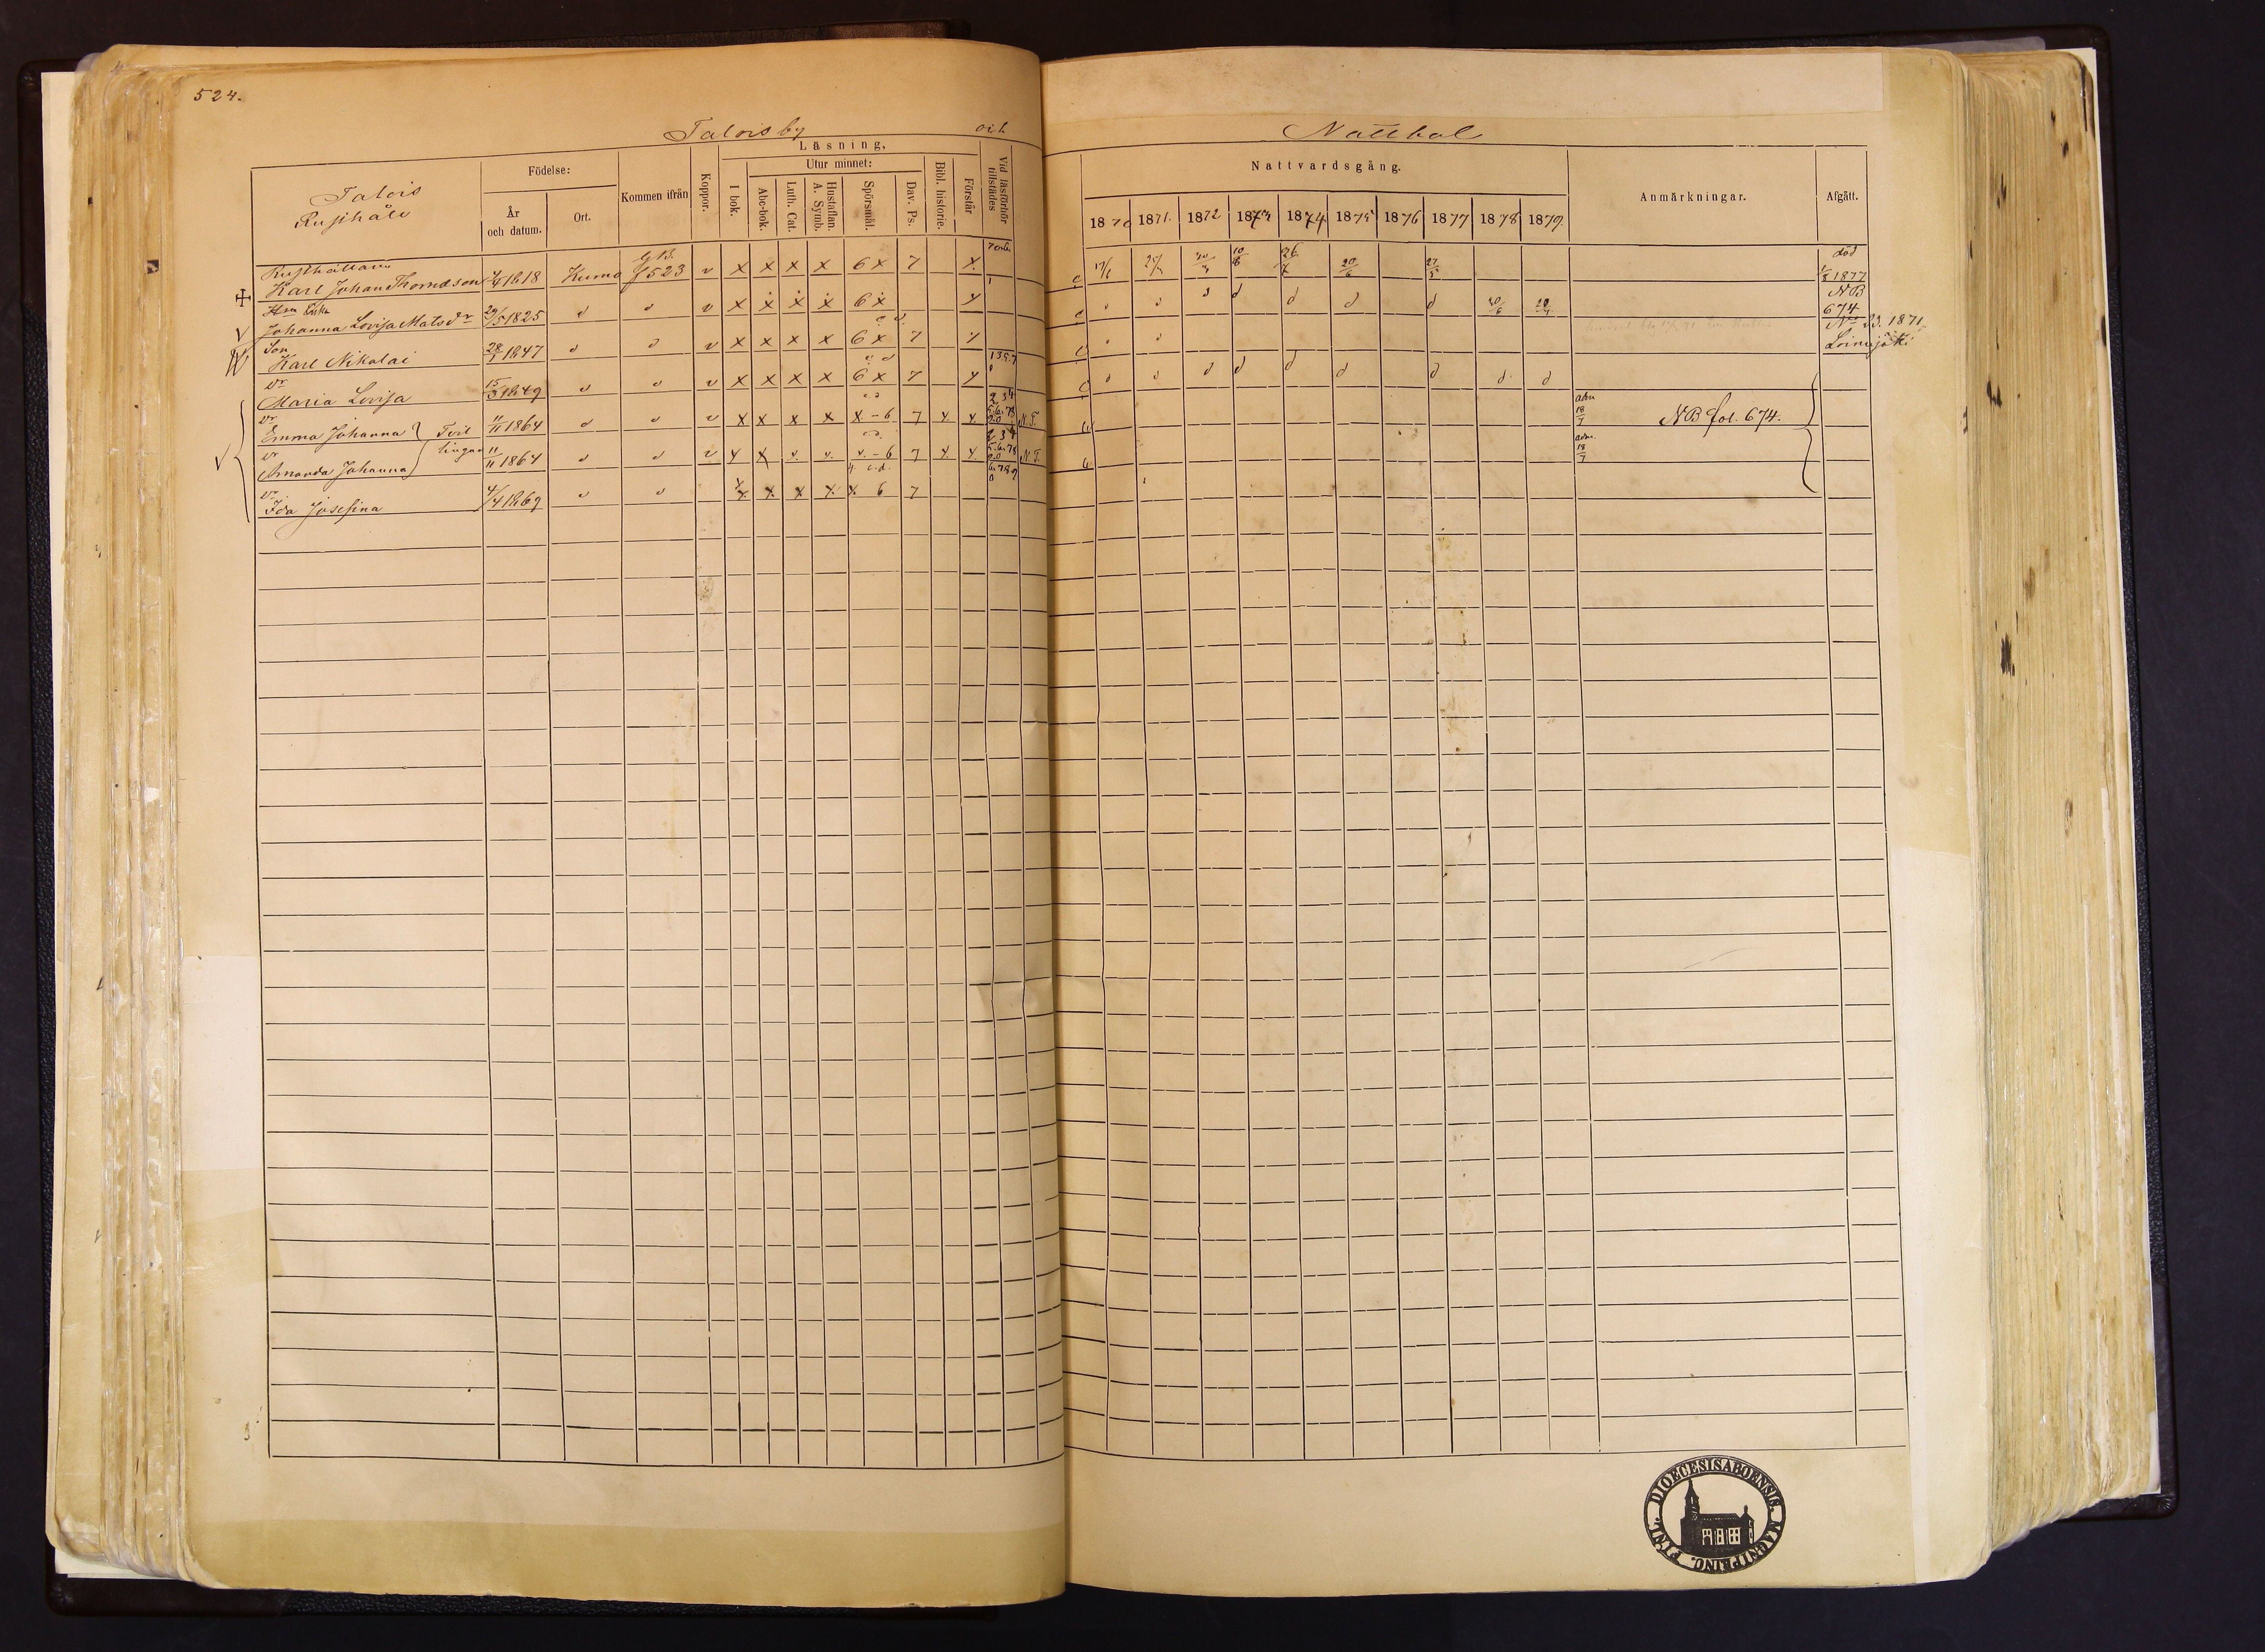 524.
Talois by och Nattbal
Talois
Rusthåll
Födelse:
År och datum.
Ort.
Kommen ifrån
Koppor.
Läsning,
Utur minnet:
I bok.
Abc-bok.
Luth. Cat.
Hustaflan. A. Symb.
Spörsmål.
Dav. Ps.
Bibl. historie.
Förstår
Vid läsförhör tillstädes
Nattvardsgång.
1870 1871. 1872 1873 1874 1875 1876 1877 1878 1879.
Anmärkningar.
Afgått.
Rusthållaren G B. död
Karl Johan Thomasson 1/4 1818 Kumo f 523 v x x x x 6 x 7 x 10/8 26/7 20/6 27/5 1877
Hn NB
Johanna Lovisa Matsdr 29/5 1825 d d v x x x x 6 x x d d d d d 674
Son No 23. 1871
Karl Nikolai 28/1 1847 d d v x x x x 6 x 7 x Loimijoki
Dr
Maria Lovisa 15/3 1849 d d v x x x x 6 x 7 x d d d d d d d d
Dr adm
Emma Johanna Tvil 11/11 1864 d d v x x x x x - 6 7 x x N.T. 18/7 NB fol. 674.
Dr adm.
Amanda Johanna lingar 11/11 1864 d d v x x v. v. v. - 6 7 x x N.T. 18/7
Dr
Ida Josefina 4/4 1869 d d x x x x x 6 7
DIOECESIS ABOENSIS. MAGNI PRINC. FINL.